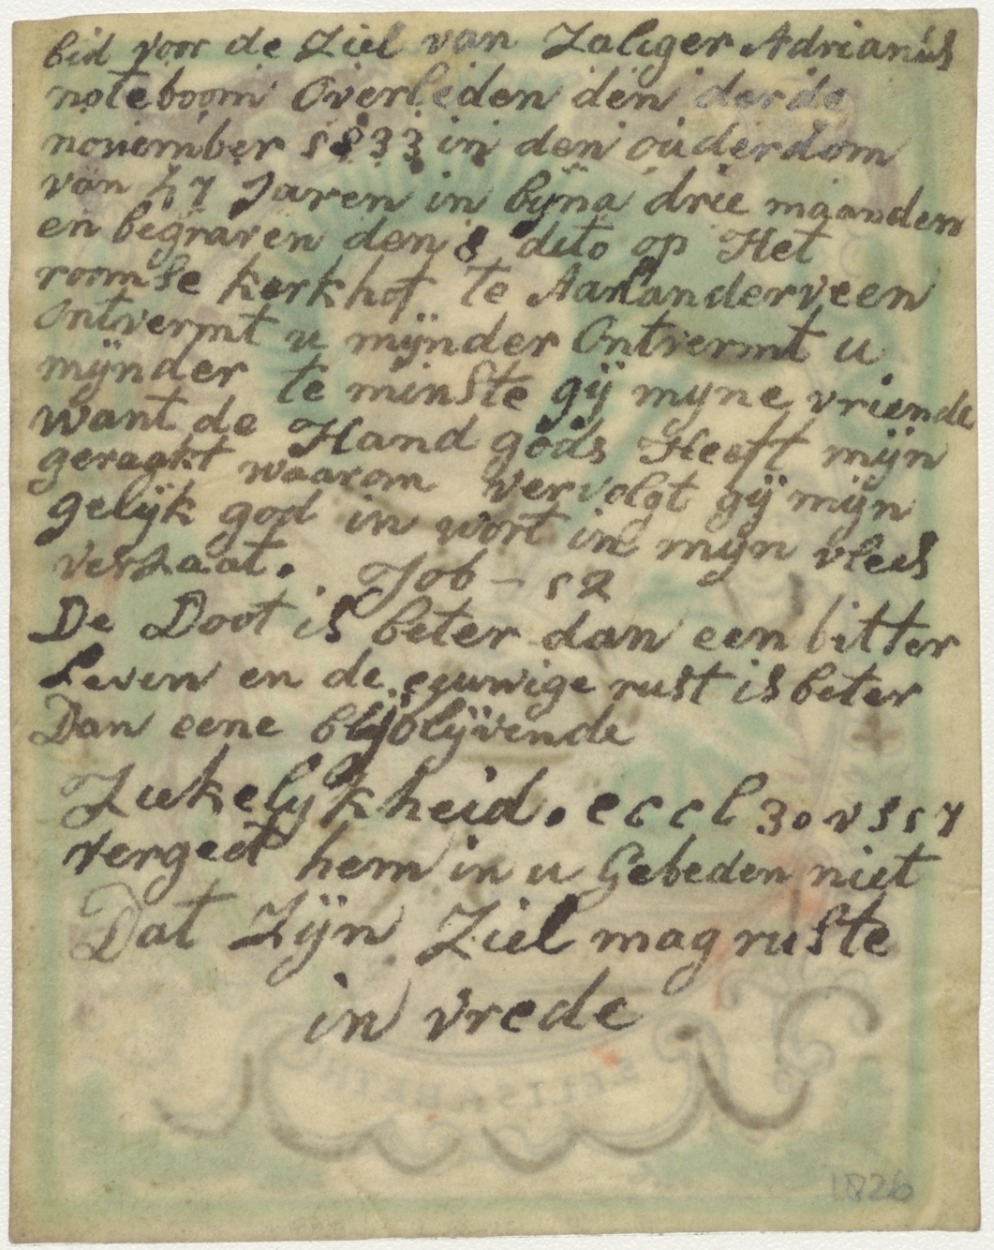 bid voor de Ziel van Zaliger Adrianus
noteboom Overleden den derde
november 1833 in den ouderdom
van 47 Jaren in bÿna drie maanden
en begraven den 8 dito op Het
roomse kerkhof te Aarlanderveen
Ontvermt u mÿnder Ontvermt u
mÿnder te minste gÿ myne vriende
want de Hand gods Heeft mÿn
geraakt waarom vervolgt gÿ mÿn
gelÿk god in wort in mÿn vlees
versaat. Job - 12
De Doot is beter dan een bitter
Leven en de eeuwige rust is beter
Dan eene blÿblÿvende
Ziekelÿkheid. eccl 30 v s 17
Vergeet hem in u Gebeden niet
Dat Zÿn Ziel mag ruste
in vrede
S. ELISABETH
1826